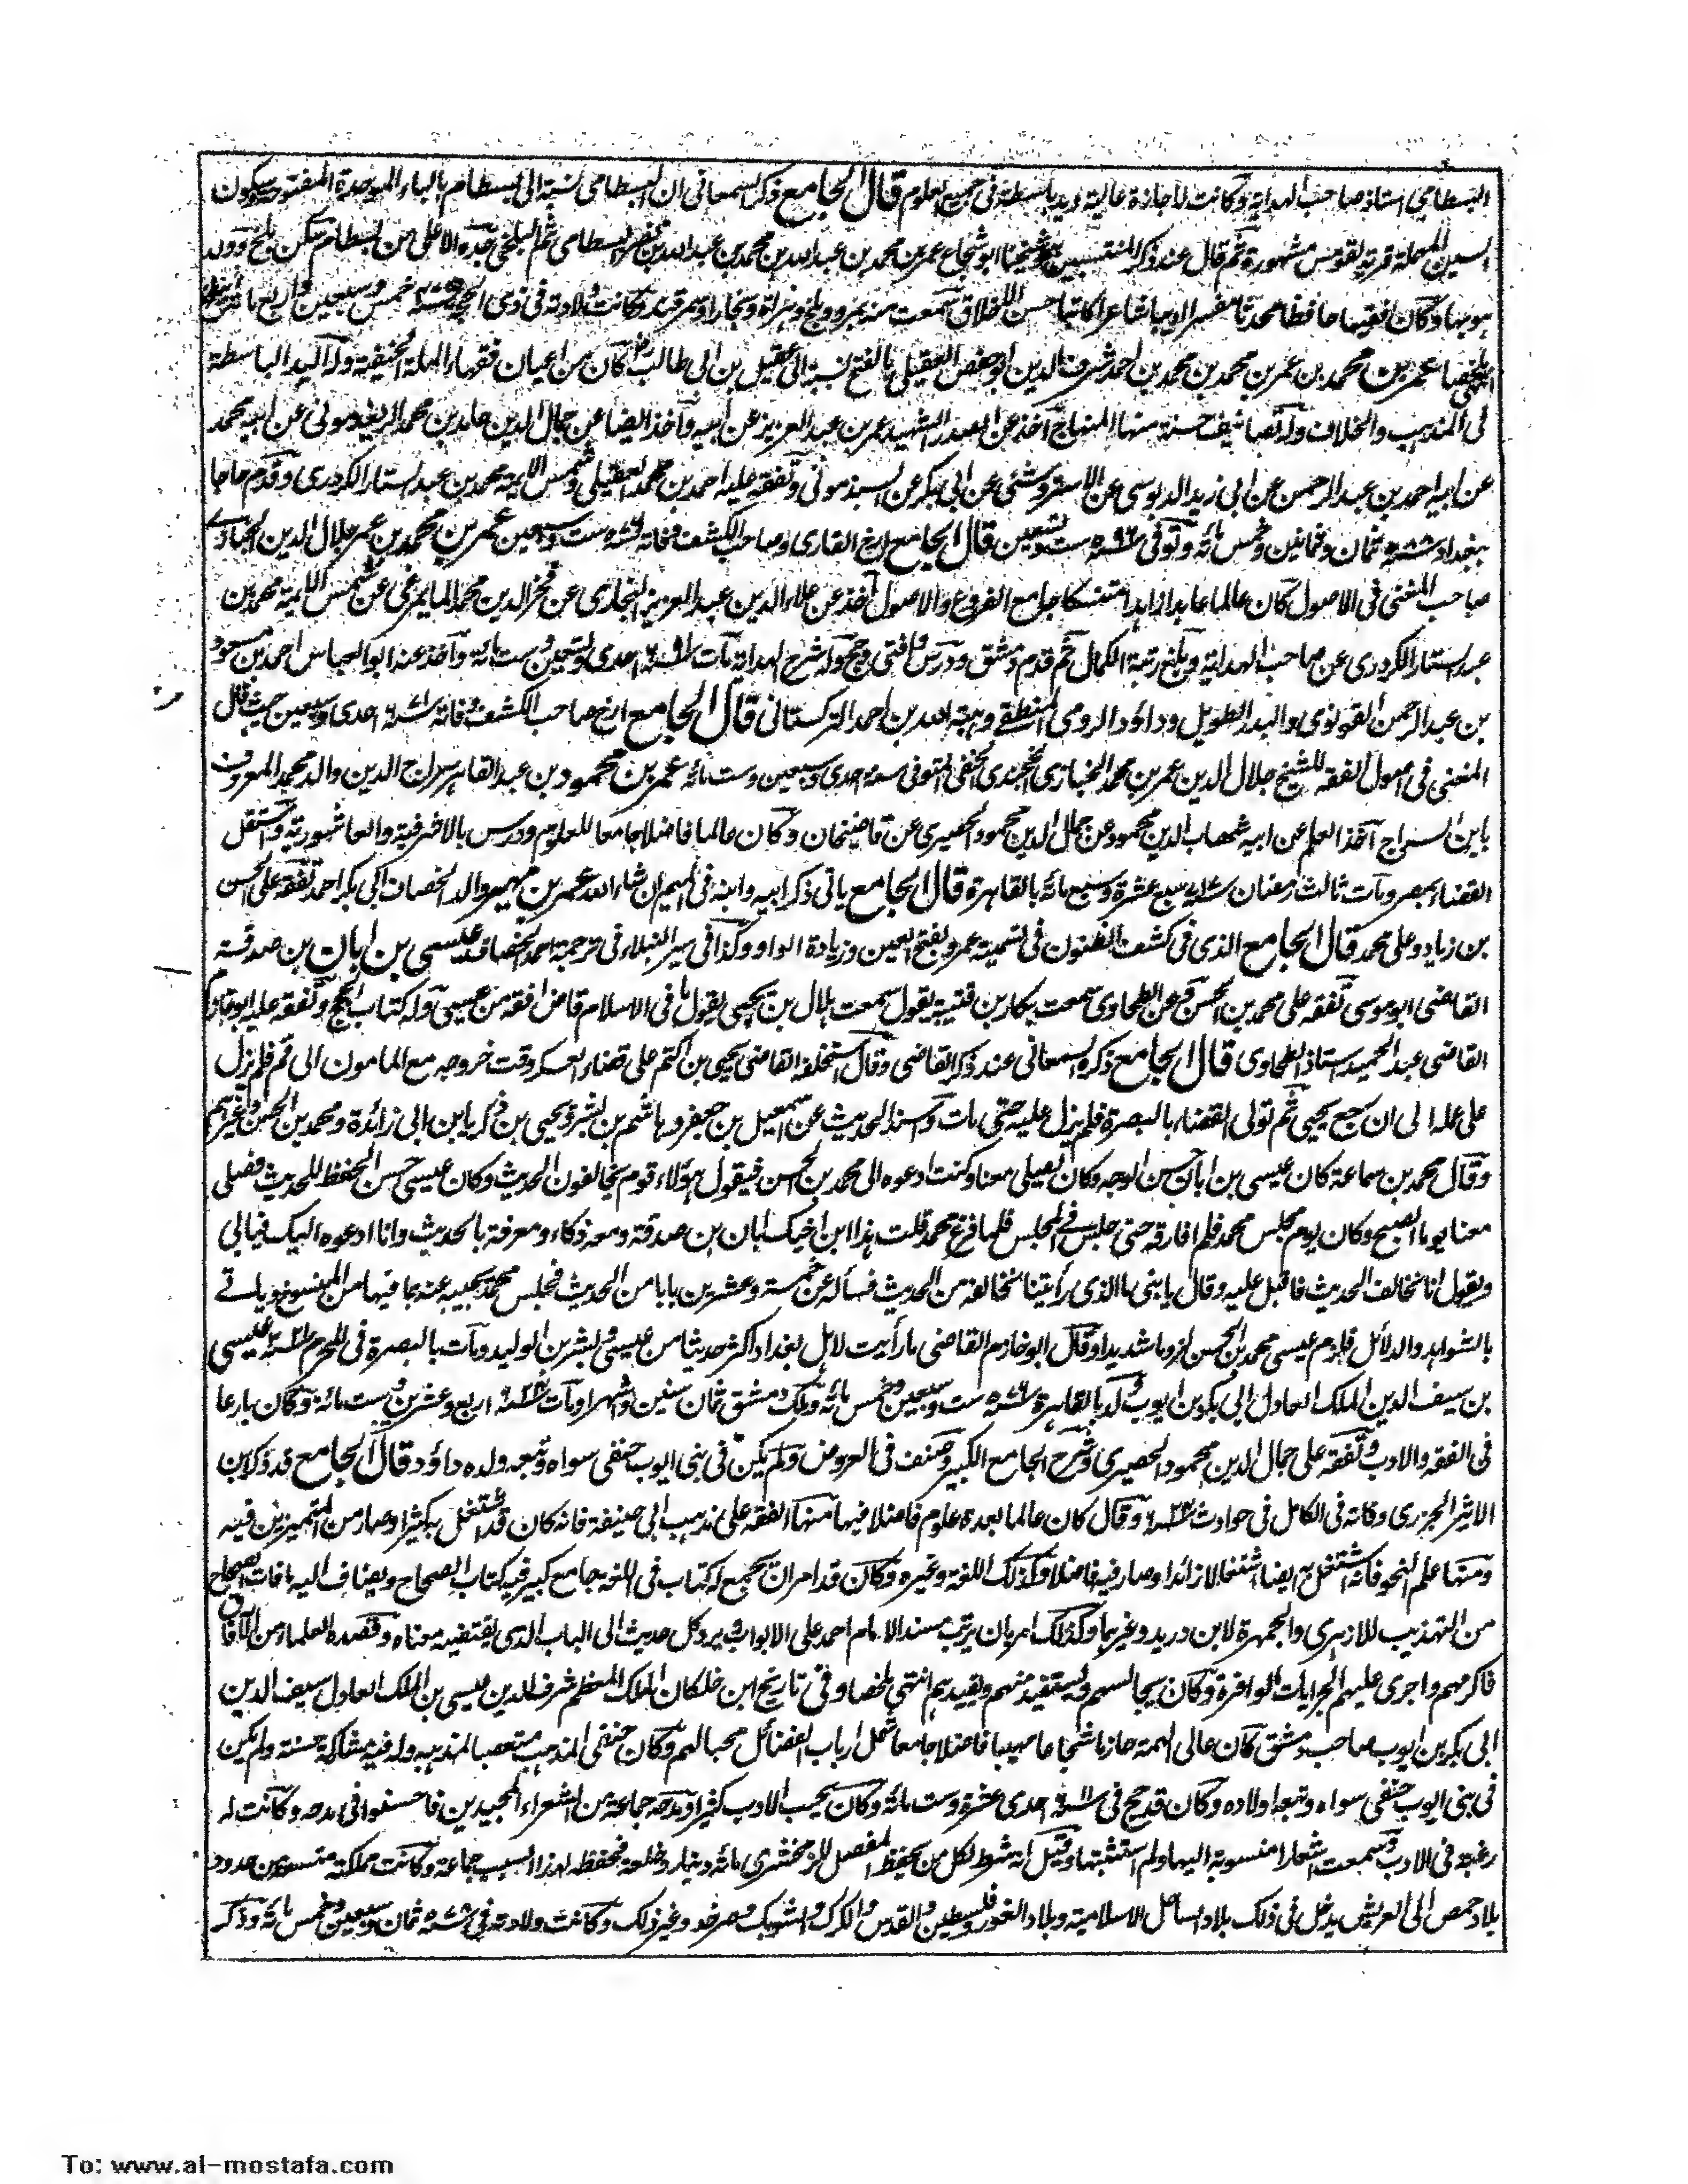 البسطامي استاذ صاحب الهداية وكانت له اجازة عالية ويد باسطة في جميع العلوم قال الجامع ذكر السمعاني ان البسطامي نسبة الى بسطام بالباء الموحدة المفتوحة وسكون
السين المهملة قرية بقومس مشهورة ثم قال عند ذكر المنتسبين شيخنا ابو شجاع عمر بن محمد بن عبد الله بن محمد بن عبد الله بن نصر البسطامي ثم البلخي جده الاعلى من بسطام سكن بلخ وولد
هو بها وكان فقيها حافظا محدثا مفسرا اديبا شاعرا كاتبا حسن الاخلاق سمعت منه بمرو وبلخ وهراة وبخارا وسمرقند وكانت ولادته في ذي الحجة سنة خمس وسبعين واربع مائة انتهى
ملخصا عمر بن محمد بن عمر بن محمد بن محمد بن احمد شرف الدين ابو حفص العقيلي بالفتح نسبة الى عقيل بن ابي طالب كان من اعيان فقهاء الملة الحنيفية وله اليد الباسطة
في المذهب والخلاف وله تصانيف حسنة منها المنهاج اخذ عن الصدر الشهيد عمر بن عبد العزيز عن ابيه واخذ ايضا عن جمال الدين حامد بن محمد الريغدموني عن ابيه محمد
عن ابيه احمد بن عبد الرحمن عن ابي زيد الدبوسي عن الاستروشني عن ابي بكر عن السبذموني وتفقه عليه احمد بن محمد العقيلي وشمس الائمة محمد بن عبد الستار الكردري وقدم حاجا
ببغداد سنة ٥٨٨ ثمان وثمانين وخمس مائة وتوفي سنة ٥٩٦ ست وتسعين قال الجامع ارخ القاري وصاحب الكشف وفاته سنة ٥٧٦ ست وسبعين عمر بن محمد بن عمر جلال الدين الخبازي
صاحب المغني في الاصول كان عالما عابدا زاهدا متنسكا جامع الفروع والاصول اخذ عن علاء الدين عبد العزيز البخاري عن فخر الدين محمد المايمرغي عن شمس الائمة محمد بن
عبد الستار الكردري عن صاحب الهداية وبلغ رتبة الكمال ثم قدم دمشق ودرس وافتى وحج وله شرح الهداية مات سنة ٦٩١ احدى وتسعين وست مائة واخذ عنه ابو العباس احمد بن مسعود
بن عبد الرحمن القونوي والبدر الطويل وداؤد الرومي المنطقي وهبة الله بن احمد التركستاني قال الجامع ارخ صاحب الكشف وفاته سنة ٦٧١ احدى وسبعين حيث قال
المغني في اصول الفقه للشيخ جلال الدين عمر بن محمد الخبازي الخجندي الحنفي المتوفى سنة احدى وسبعين وست مائة عمر بن محمود بن عبد القاهر سراج الدين والد محمد المعروف
بابن السراج آخذ العلم عن ابيه شهاب الدين محمود عن جمال الدين محمود الحصيري عن قاضيخان وكان عالما فاضلا جامعا للعلوم ودرس بالاشرفية والعاشورية واستقل
القضاء بمصر ومات ثالث رمضان سنة ٧١٧ سبع عشرة وسبع مائة بالقاهرة قال الجامع ياتي ذكر ابيه وابنه في الميم ان شاء الله عمر بن مهير والد الخصاف ابي بكر احمد تفقه على الحسن
بن زياد وعلى محمد قال الجامع الذي في كشف الظنون في تسميته عمرو بفتح العين وزيادة الواو وكذا في سير النبلاء في ترجمة احمد الخصاف عيسى بن ابان بن صدقة
القاضي ابو موسى تفقه على محمد بن الحسن وعن الطحاوي سمعت بكار بن قتيبة يقول سمعت هلال بن يحيى يقول ما في الاسلام قاض افقه من عيسى وله كتاب الحج وتفقه عليه ابو خازم
القاضي عبد الحميد استاذ الطحاوي قال الجامع ذكره السمعاني عند ذكر القاضي وقال استخلفه القاضي يحيى بن اكثم على قضاء العسكر وقت خروجه مع المامون الى فم فلم يزل
على عمله الى ان رجع يحيى ثم تولى القضاء بالبصرة فلم يزل عليه حتى مات واسند الحديث عن اسمعيل بن جعفر وهاشم بن بشر ويحيى بن زكريا بن ابي زائدة ومحمد بن الحسن وغيرهم
وقال محمد بن سماعة كان عيسى بن ابان حسن الوجه وكان يصلي معنا وكنت ادعوه الى محمد بن الحسن فيقول هؤلاء قوم يخالفون الحديث وكان عيسى حسن الحفظ للحديث فصلى
معنا يوما الصبح وكان يوم مجلس محمد فلم افارقه حتى جلس في المجلس فلما فرغ محمد قلت هذا ابن اخيك ابان بن صدقة ومعه ذكاء ومعرفة بالحديث وانا ادعوه اليك فيابى
ويقول انا نخالف الحديث فاقبل عليه وقال يا بني ما الذي رأيتنا نخالفه من الحديث فسأله عن خمسة وعشرين بابا من الحديث فجلس محمد يجيبه عنه بما فيها من المنسوخ وياتي
بالشواهد والدلائل فلزم عيسى محمد بن الحسن لزوما شديدا وقال ابو خازم القاضي ما رأيت لاهل بغداد اكثر حديثا من عيسى وبشر بن الوليد ومات بالبصرة في المحرم سنة ٢٢١ عيسى
بن سيف الدين الملك العادل ابي بكر بن ايوب ولد بالقاهرة سنة ٥٧٦ ست وسبعين وخمس مائة وملك دمشق ثمان سنين واشهرا ومات سنة ٦٢٤ اربع وعشرين وست مائة وكان بارعا
في الفقه والادب وتفقه على جمال الدين محمود الحصيري وشرح الجامع الكبير وصنف في العروض ولم يكن في بني ايوب حنفي سواه وتبعه ولده داؤد قال الجامع قد ذكر ابن
الاثير الجزري وفاته في الكامل في حوادث سنة ٦٢٤ وقال كان عالما بعدة علوم فاضلا فيها منها الفقه على مذهب ابي حنيفة فانه كان قد اشتغل به كثيرا وصار من المتميزين فيه
ومنها علم النحو فانه اشتغل به ايضا اشتغالا زائدا وصار فيه فاضلا وكذلك اللغة وغيره وكان قد امر ان يجمع له كتاب في اللغة جامع كبير فيه كتاب الصحاح ويضاف اليه ما فات الصحاح
من التهذيب للازهري والجمهرة لابن دريد وغيرهما وكذلك امر بان يرتب مسند الامام احمد على الابواب ويرد كل حديث الى الباب الذي يقتضيه معناه وقصده العلماء من الآفاق
فاكرمهم واجرى عليهم الجرايات الوافرة وكان يجالسهم ويستفيد منهم ويفيدهم انتهى ملخصا وفي تاريخ ابن خلكان الملك المعظم شرف الدين عيسى بن الملك العادل سيف الدين
ابي بكر بن ايوب صاحب دمشق كان عالي الهمة حازما شجاعا مهيبا فاضلا جامعا شمل ارباب الفضائل محبا لهم وكان حنفي المذهب متعصبا لمذهبه وله فيه مشاركة حسنة ولم يكن
في بني ايوب حنفي سواه وتبعه اولاده وكان قد حج في سنة ٦١١ احدى عشرة وست مائة وكان يحب الادب كثيرا ومدحه جماعة من الشعراء المجيدين فاحسنوا في مدحه وكانت له
رغبة في الادب وسمعت اشعارا منسوبة اليه ولم استثبتها وقيل انه شرط لكل من يحفظ المفصل للزمخشري مائة دينار وخلعة فحفظه لهذا السبب جماعة وكانت مملكته متسعة من حدود
بلاد حمص الى العريش يدخل في ذلك بلاد الساحل الاسلامية وبلاد الغور وفلسطين والقدس والكرك والشوبك وصرخد وغير ذلك وكانت ولادته في سنة ٥٧٨ ثمان وسبعين وخمس مائة وذكر
To: www.al-mostafa.com